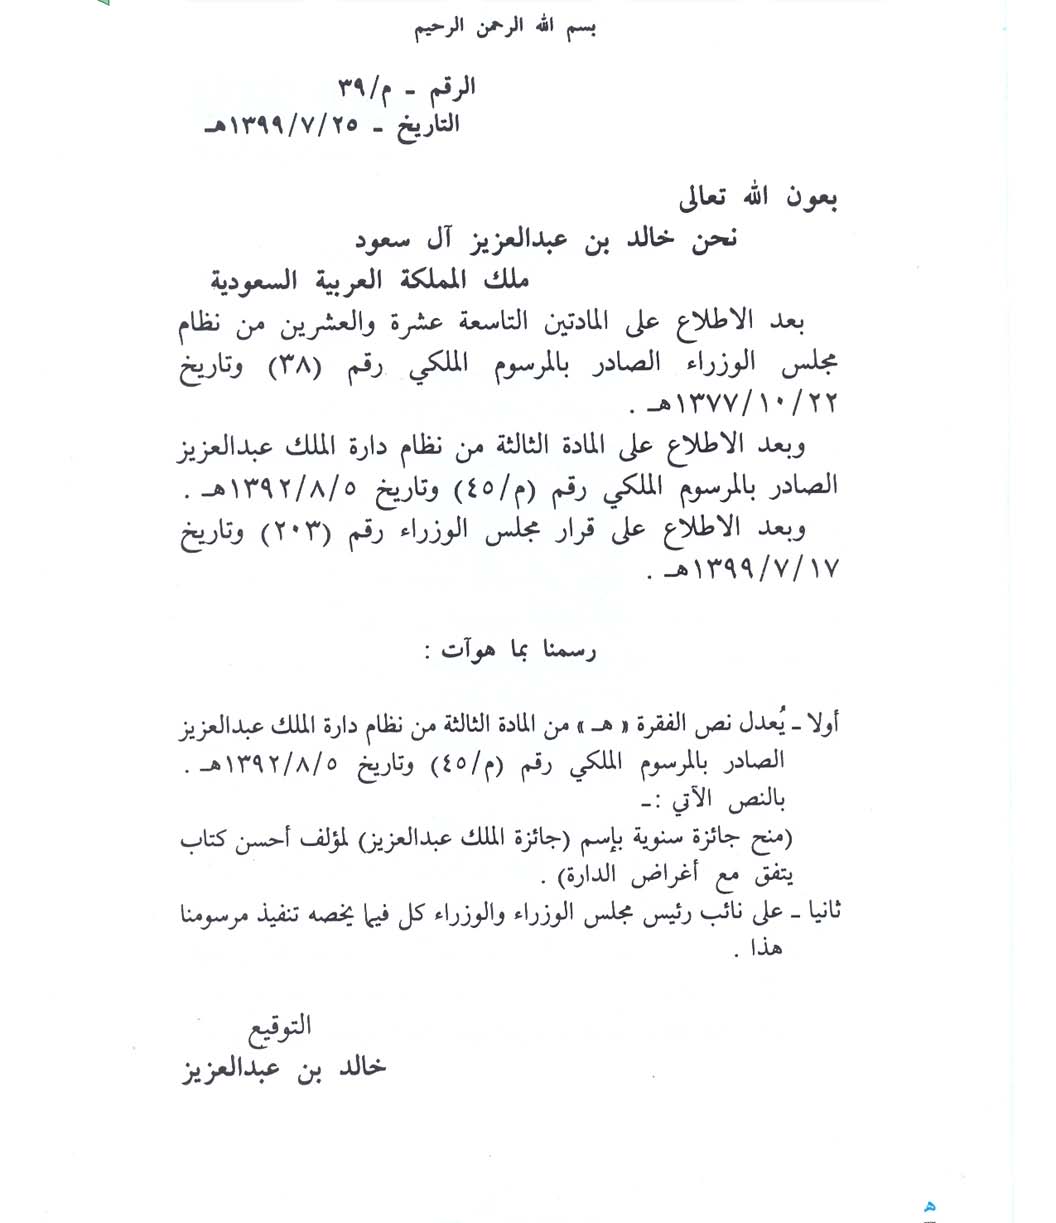 بسم الله الرحمن الرحيم
الرقم - م/٣٩
التاريخ - ١٣٩٩/٧/٢٥هـ
بعون الله تعالى
نحن خالد بن عبدالعزيز آل سعود
ملك المملكة العربية السعودية
بعد الاطلاع على المادتين التاسعة عشرة والعشرين من نظام
مجلس الوزراء الصادر بالمرسوم الملكي رقم (٣٨) وتاريخ
١٣٧٧/١٠/٢٢هـ .
وبعد الاطلاع على المادة الثالثة من نظام دارة الملك عبدالعزيز
الصادر بالمرسوم الملكي رقم (م/٤٥) وتاريخ ١٣٩٢/٨/٥هـ .
وبعد الاطلاع على قرار مجلس الوزراء رقم (٢٠٣) وتاريخ
١٣٩٩/٧/١٧هـ .
رسمنا بما هوآت :
أولا - يُعدل نص الفقرة « هـ » من المادة الثالثة من نظام دارة الملك عبدالعزيز
الصادر بالمرسوم الملكي رقم (م/٤٥) وتاريخ ١٣٩٢/٨/٥هـ .
بالنص الآتي :-
(منح جائزة سنوية بإسم (جائزة الملك عبدالعزيز) لمؤلف أحسن كتاب
يتفق مع أغراض الدارة) .
ثانيا - على نائب رئيس مجلس الوزراء والوزراء كل فيما يخصه تنفيذ مرسومنا
هذا .
التوقيع
خالد بن عبدالعزيز